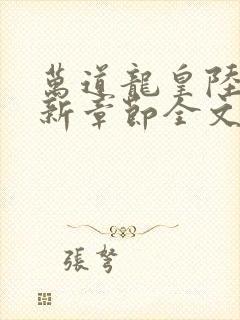 萬道龍皇陸
新章節全文
張弩